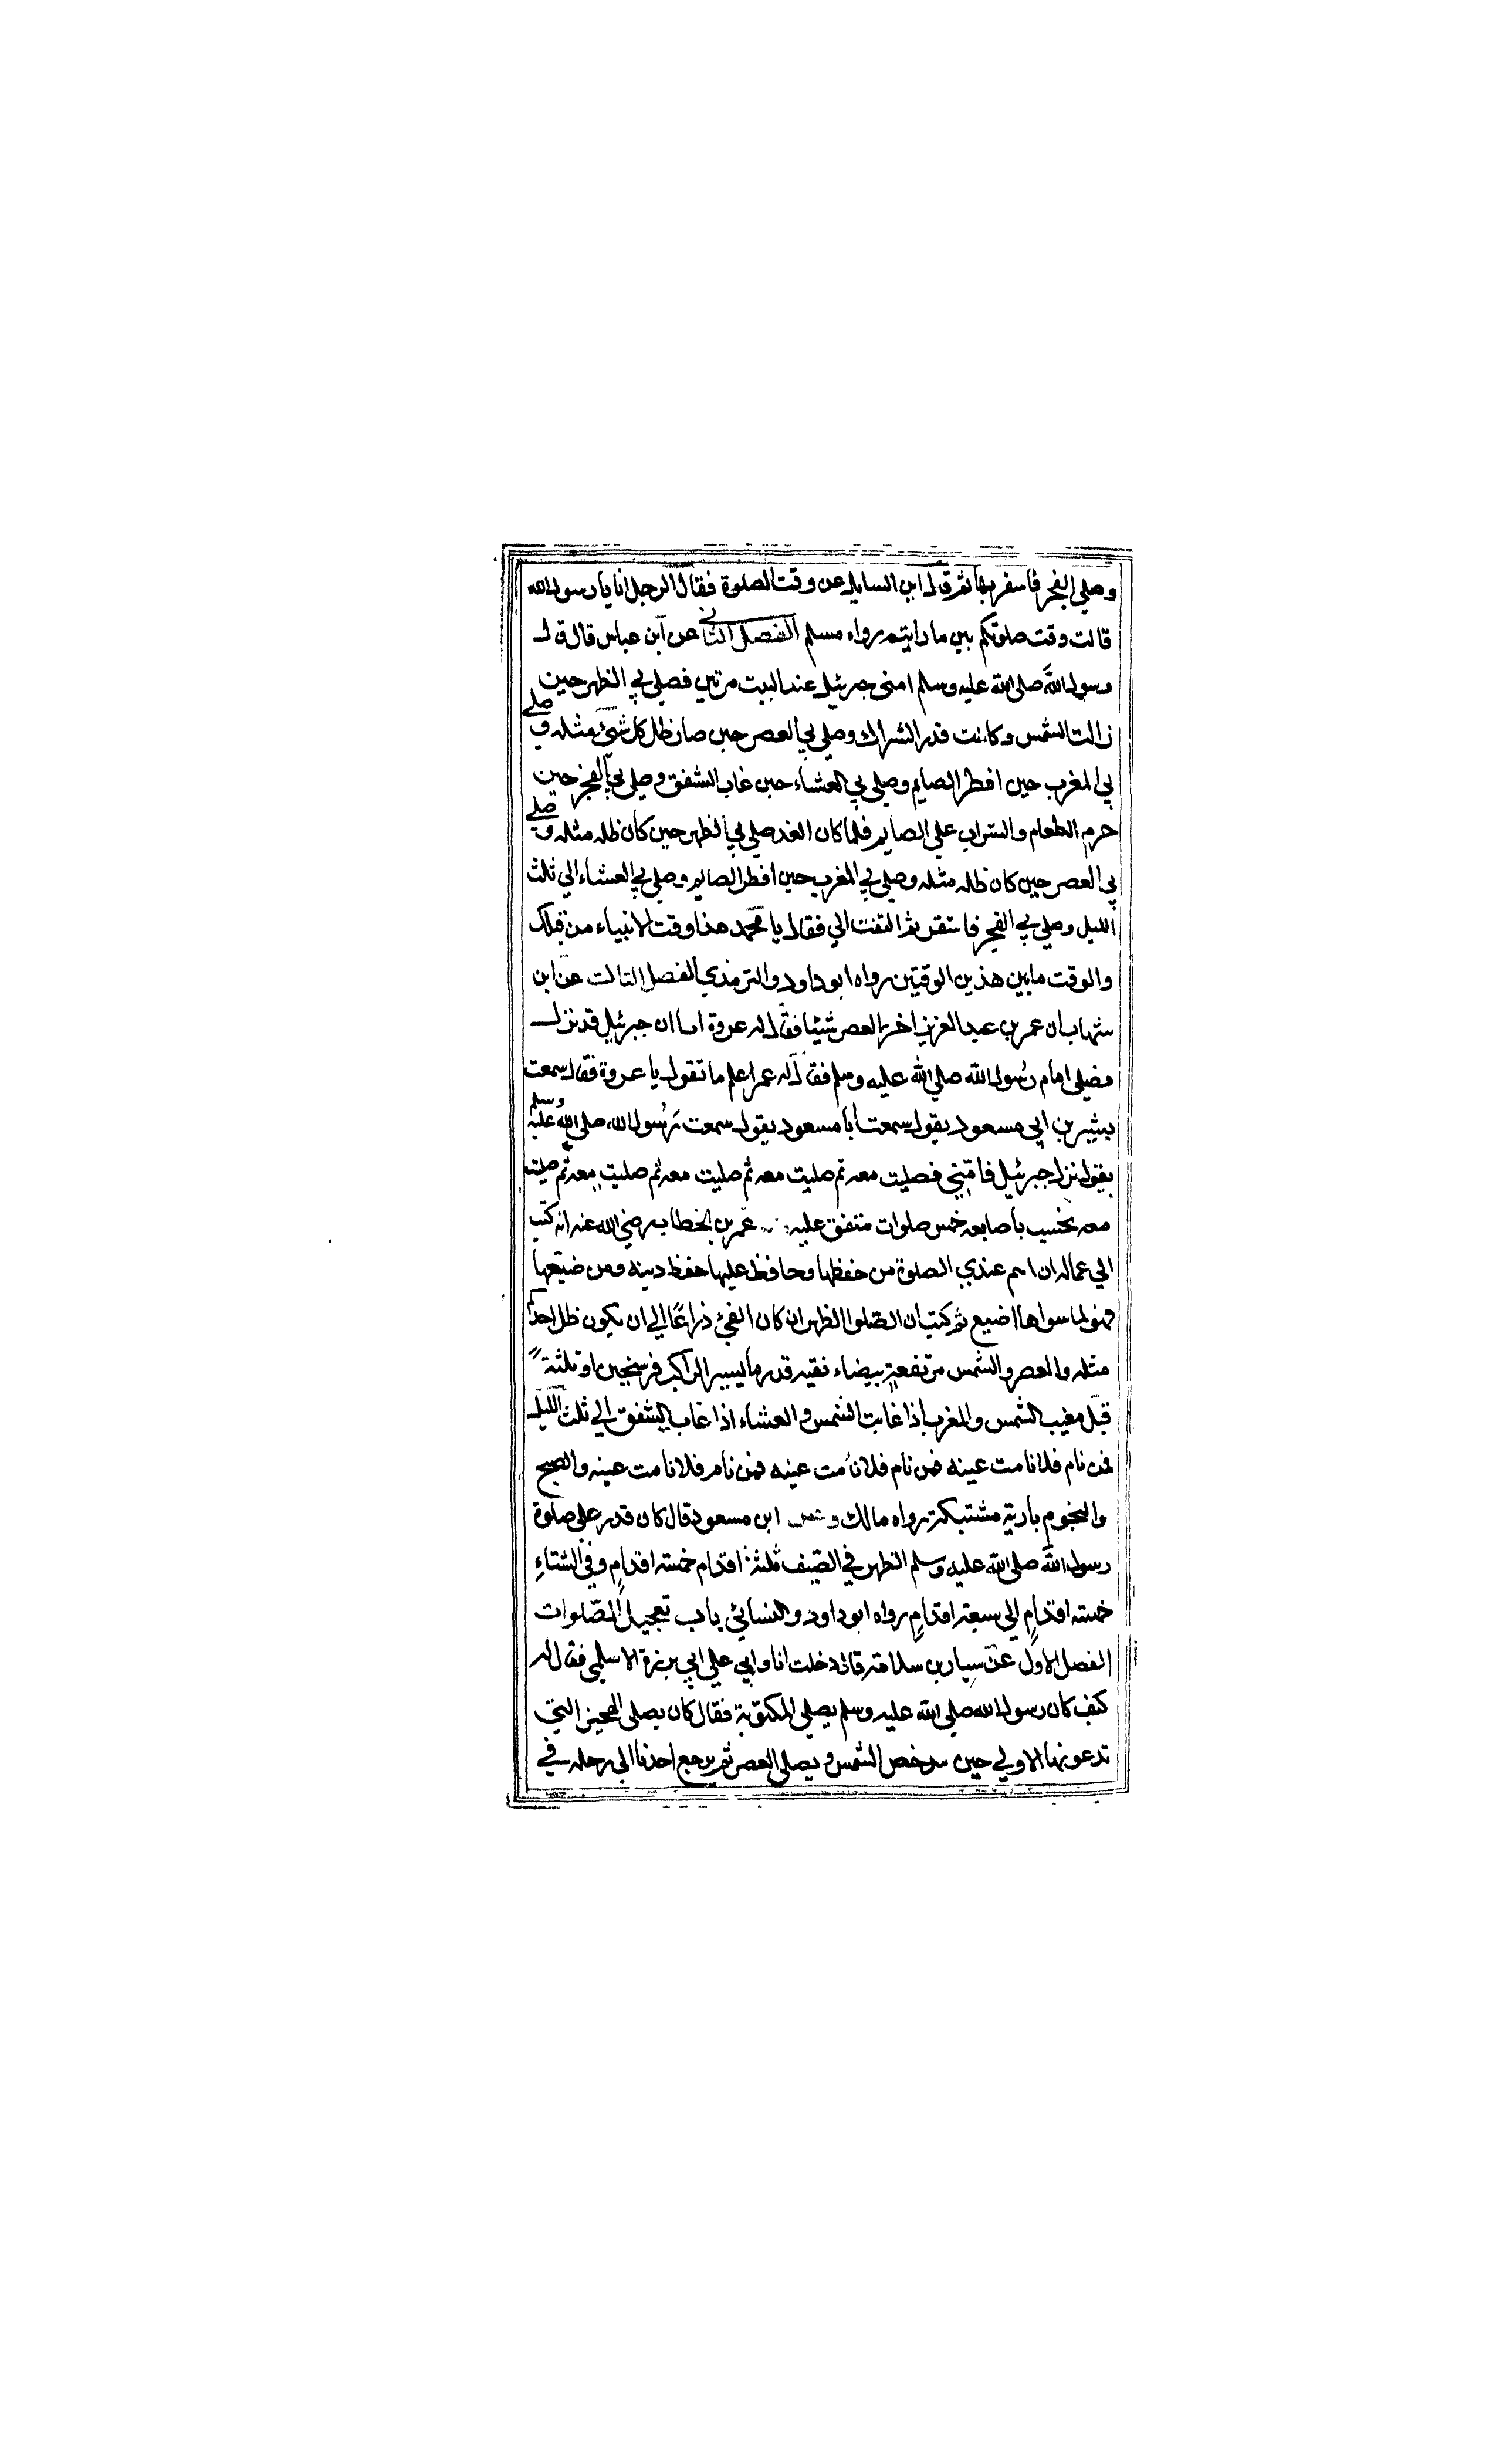 وصلي الفجر فاسفر بها ثم قال اين السايل عن وقت الصلوة فقال الرجل انا يا رسول الله
قال وقت صلوتكم بين ما رايتم رواه مسلم الفصل الثاني عن ابن عباس قال قال
رسول الله صلى الله عليه وسلم امنى جبرئيل عند البيت مرتين فصلي بي الظهر حين
زالت الشمس وكانت قدر الشراك وصلي بي العصر حين صار ظل كل شئ مثله و صلے
بي المغرب حين افطر الصايم وصلي بي العشاء حين غاب الشفق وصلي بي الفجر حين
حرم الطعام والشراب علي الصايم فلما كان الغد صلي بي الظهر حين كان ظله مثله و صلے
بي العصر حين كان ظله مثله وصلي بي المغرب حين افطر الصايم وصلي بي العشاء الي ثلث
الليل وصلي بي الفجر فاسفر ثم التفت الي فقال يا محمد هذا وقت الانبياء من قبلك
والوقت ما بين هذين الوقتين رواه ابو داود والترمذي الفصل الثالث عن ابن
شهاب ان عمر بن عبد العزيز اخر العصر شيئا فقال له عروة اما ان جبرئيل قد نزل
فصلى امام رسول الله صلي الله عليه وسلم فقال له عمر اعلم ما تقول يا عروة فقال سمعت
بشير بن ابي مسعود يقول سمعت ابا مسعود يقول سمعت رسول الله صلى الله عليه وسلم
يقول نزل جبرئيل فامّني فصليت معه ثم صليت معه ثم صليت معه ثم صليت معه ثم صليت
معه يحسب باصابعه خمس صلوات متفق عليه عمر بن الخطاب رضي الله عنه انه كتب
الي عماله ان اهم عندي الصلوة من حفظها وحافظ عليها حفظ دينه ومن ضيعها
فهو لما سواها اضيع ثم كتب ان الصلوا الظهر ان كان الفئ ذراعًا الي ان يكون ظل احدكم
مثله والعصر والشمس مرتفعة بيضاء نقيه قدر ما يسير الراكب فرسخين او ثلثة
قبل مغيب الشمس والمغرب اذا غابت الشمس والعشاء اذا غاب الشفق الي ثلث الليل
فمن نام فلا نامت عينه فمن نام فلا نامت عينه فمن نام فلا نامت عينه والصبح
والنجوم بادية مشتبكة رواه مالك و ابن مسعود قال كان قدر علي صلوة
رسول الله صلى الله عليه وسلم الظهر في الصيف ثلثة اقدام خمسة اقدام وفي الشتاء
خمسة اقدام الي سبعة اقدام رواه ابو داود والنسائي باب تعجيل الصلوات
الفصل الاول عن سيار بن سلامة قال دخلت انا وابي علي ابي برزة الاسلمي فقال له
كيف كان رسول الله صلى الله عليه وسلم يصلي المكتوبة فقال كان يصلي الهجير التي
تدعونها الاولي حين تدحض الشمس ويصلي العصر ثم يرجع احدنا الي رحله في